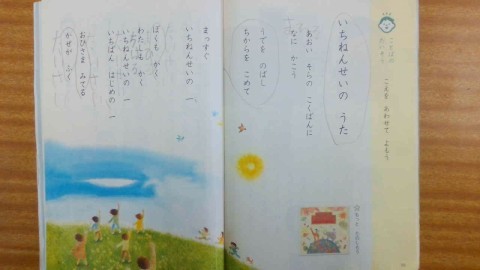 こえを あわせて よもう
いちねんせいの うた
あおい そらの こくばんに
なに かこう
うでを のばし
ちからを こめて
まっすぐ
いちねんせいの 一
ぼくも かく
わたしも かく
いちねんせいの 一
いちばん はじめの 一
おひさま みてる
かぜが ふく